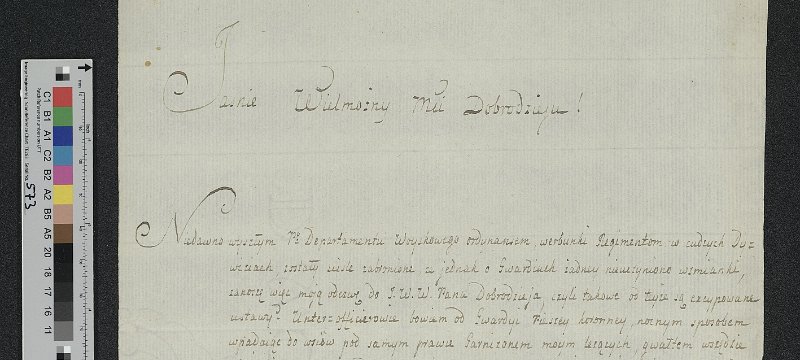 Jasnie Wielmożny Mci Dobrodzieju!
Niedawno wyszłym Departamentu Woyskowego ordynansem, werbunki Regimentom w cudzych Dy-
wizyach zostały ściśle zabronione, a jednak o Gwardiach żadney nieuczyniono wzmianki,
więc moją odezwę do J. W. W. Pana Dobrodzieja, czyli takowe od tyże są excypowane
ustawy? Unterofficerowie bowiem od Gwardyi Pieszey koronney, nocnym sposobem
wpadając do wsiów pod samym prawie Garnizonem moim leżących, gwałtem wszędzie
C1 B1 A1 C2 B2 A2 B5 A5 20 18 17 16 11
573